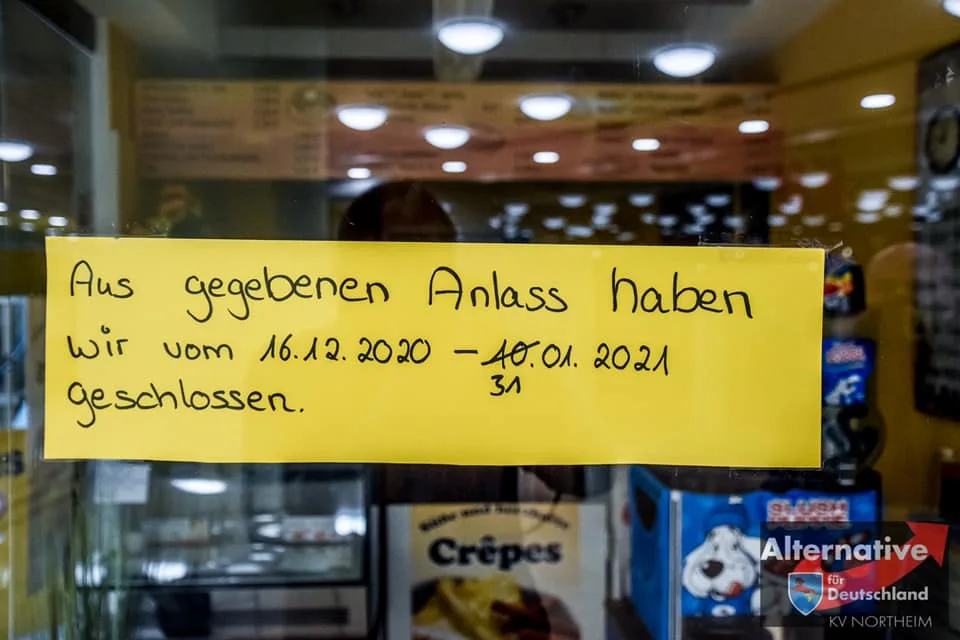 Aus gegebenen Anlass haben
wir vom 16.12.2020 – 10.01.2021
31
geschlossen.
Crêpes
SLUSH
Alternative
für
Deutschland
KV NORTHEIM